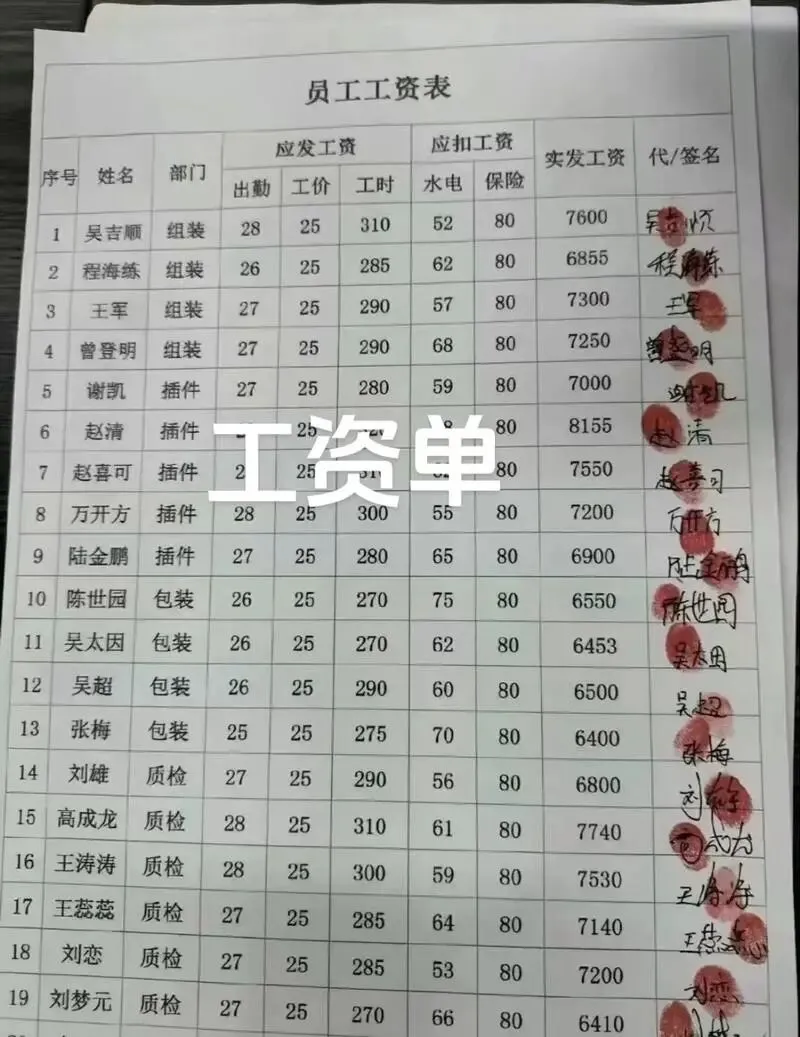 员工工资表
序号 姓名 部门 应发工资 应扣工资 实发工资 代/签名
出勤 工价 工时 水电 保险
1 吴吉顺 组装 28 25 310 52 80 7600 吴吉顺
2 程海练 组装 26 25 285 62 80 6855 程海练
3 王军 组装 27 25 290 57 80 7300 王军
4 曾登明 组装 27 25 290 68 80 7250 曾登明
5 谢凯 插件 27 25 280 59 80 7000 谢凯
6 赵清 插件 25 80 8155 赵清
7 赵喜可 插件 25 80 7550 赵喜可
工资单
8 万开方 插件 28 25 300 55 80 7200 万开方
9 陆金鹏 插件 27 25 280 65 80 6900 陆金鹏
10 陈世园 包装 26 25 270 75 80 6550 陈世园
11 吴太因 包装 26 25 270 62 80 6453 吴太因
12 吴超 包装 26 25 290 60 80 6500 吴超
13 张梅 包装 25 25 275 70 80 6400 张梅
14 刘雄 质检 27 25 290 56 80 6800 刘雄
15 高成龙 质检 28 25 310 61 80 7740 高成龙
16 王涛涛 质检 28 25 300 59 80 7530 王涛涛
17 王蕊蕊 质检 27 25 285 64 80 7140 王蕊蕊
18 刘恋 质检 27 25 285 53 80 7200 刘恋
19 刘梦元 质检 27 25 270 66 80 6410